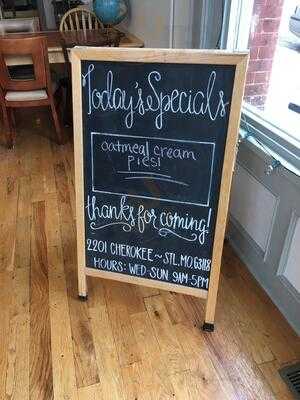 Today's Specials
oatmeal cream
pies!
thanks for coming!
2201 CHEROKEE ~ STL.MO.63118
HOURS: WED-SUN 9AM-5PM